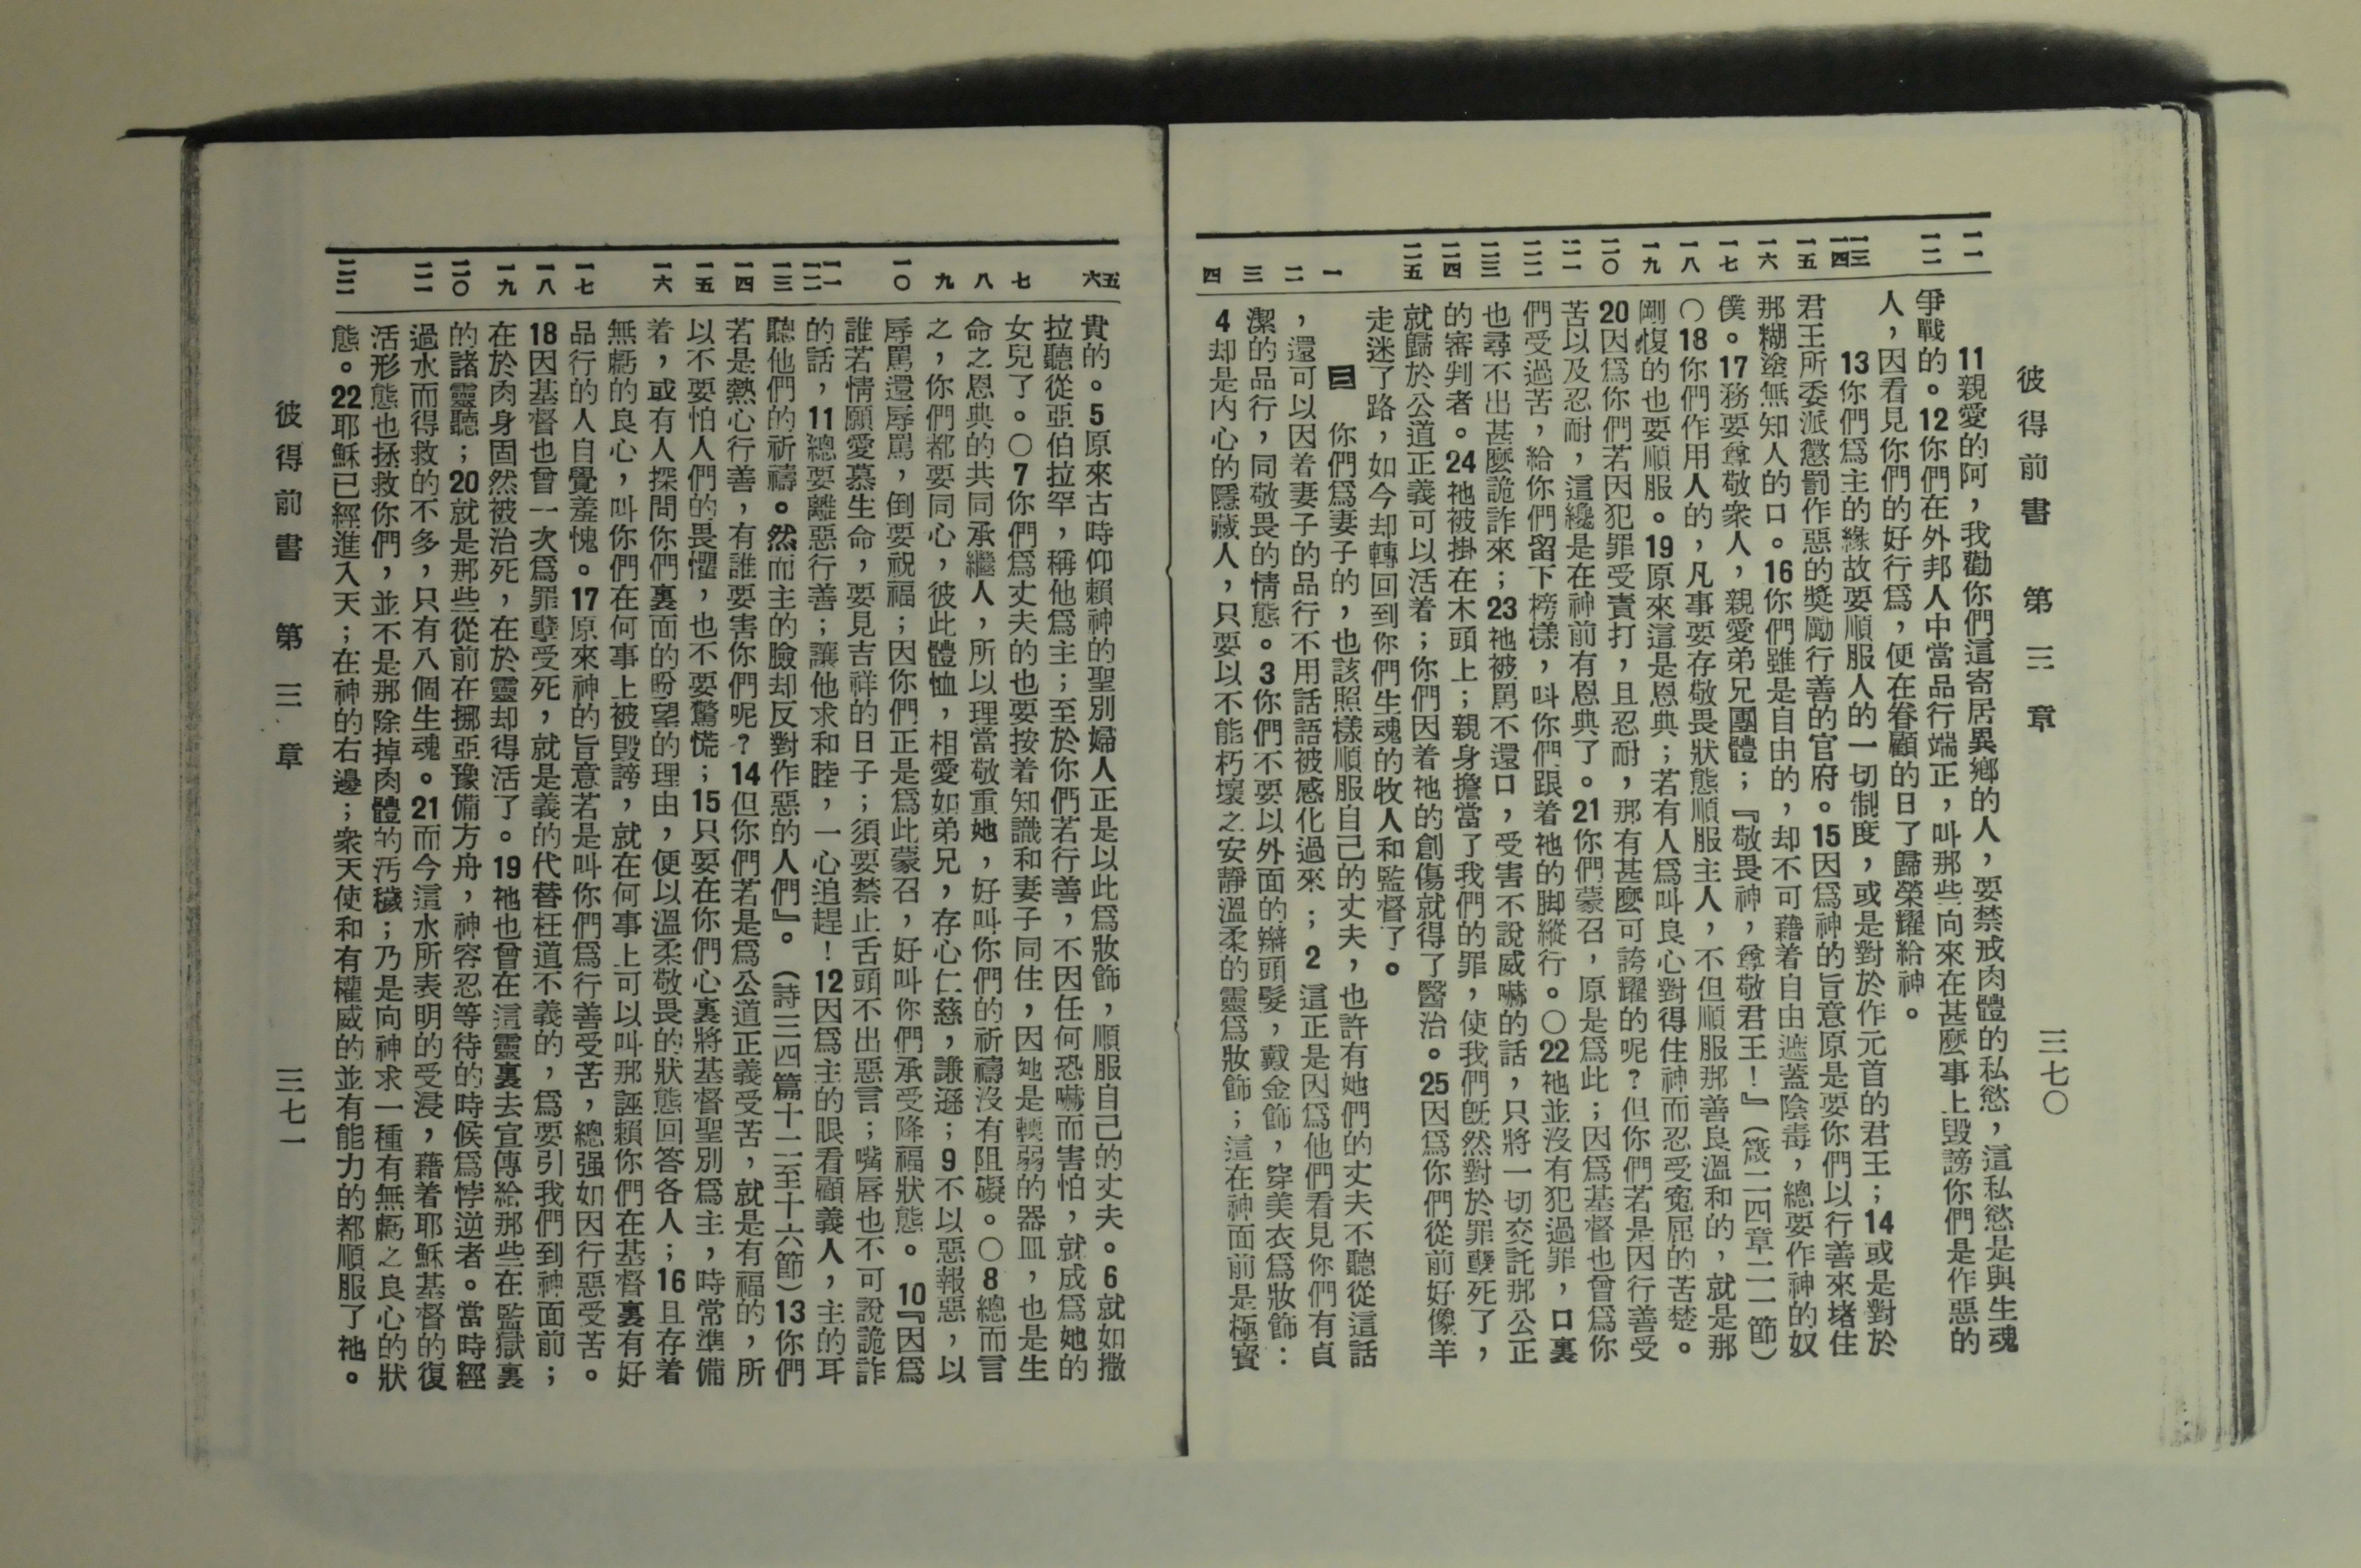 彼得前書　第三章　三七〇
一一
一二
一三
一四
一五
一六
一七
一八
一九
二〇
二一
二二
二三
二四
二五
一
二
三
四
11親愛的阿，我勸你們這寄居異鄉的人，要禁戒肉體的私慾，這私慾是與生魂
爭戰的。12你們在外邦人中當品行端正，叫那些向來在甚麼事上毀謗你們是作惡的
人，因看見你們的好行爲，便在眷顧的日子歸榮耀給神。
13你們爲主的緣故要順服人的一切制度，或是對於作元首的君王；14或是對於
君王所委派懲罰作惡的獎勵行善的官府。15因爲神的旨意原是要你們以行善來堵住
那糊塗無知人的口。16你們雖是自由的，却不可藉着自由遮蓋陰毒，總要作神的奴
僕。17務要尊敬衆人，親愛弟兄團體；『敬畏神，尊敬君王！』（箴二四章二一節）
〇18你們作用人的，凡事要存敬畏狀態順服主人，不但順服那善良溫和的，就是那
剛愎的也要順服。19原來這是恩典；若有人爲叫良心對得住神而忍受寃屈的苦楚。
20因爲你們若因犯罪受責打，且忍耐，那有甚麼可誇耀的呢？但你們若是因行善受
苦以及忍耐，這纔是在神前有恩典了。21你們蒙召，原是爲此；因爲基督也曾爲你
們受過苦，給你們留下榜樣，叫你們跟着祂的脚縱行。〇22祂並沒有犯過罪，口裏
也尋不出甚麼詭詐來；23祂被罵不還口，受害不說威嚇的話，只將一切交託那公正
的審判者。24祂被掛在木頭上；親身擔當了我們的罪，使我們旣然對於罪孽死了，
就歸於公道正義可以活着；你們因着祂的創傷就得了醫治。25因爲你們從前好像羊
走迷了路，如今却轉回到你們生魂的牧人和監督了。
三　你們爲妻子的，也該照樣順服自己的丈夫，也許有她們的丈夫不聽從這話
，還可以因着妻子的品行不用話語被感化過來；2這正是因爲他們看見你們有貞
潔的品行，同敬畏的情態。3你們不要以外面的辮頭髮，戴金飾，穿美衣爲妝飾：
4却是內心的隱藏人，只要以不能朽壞之安靜溫柔的靈爲妝飾；這在神面前是極寶
五
六
七
八
九
一〇
一一
一二
一三
一四
一五
一六
一七
一八
一九
二〇
二一
二二
貴的。5原來古時仰賴神的聖別婦人正是以此爲妝飾，順服自己的丈夫。6就如撒
拉聽從亞伯拉罕，稱他爲主；至於你們若行善，不因任何恐嚇而害怕，就成爲她的
女兒了。〇7你們爲丈夫的也要按着知識和妻子同住，因她是輭弱的器皿，也是生
命之恩典的共同承繼人，所以理當敬重她，好叫你們的祈禱沒有阻礙。〇8總而言
之，你們都要同心，彼此體恤，相愛如弟兄，存心仁慈，謙遜；9不以惡報惡，以
辱罵還辱罵，倒要祝福；因你們正是爲此蒙召，好叫你們承受降福狀態。10『因爲
誰若情願愛慕生命，要見吉祥的日子；須要禁止舌頭不出惡言；嘴唇也不可說詭詐
的話，11總要離惡行善；讓他求和睦，一心追趕！12因爲主的眼看顧義人，主的耳
聽他們的祈禱。然而主的臉却反對作惡的人們』。（詩三四篇十二至十六節）13你們
若是熱心行善，有誰要害你們呢？14但你們若是爲公道正義受苦，就是有福的，所
以不要怕人們的畏懼，也不要驚慌；15只要在你們心裏將基督聖別爲主，時常準備
着，或有人探問你們裏面的盼望的理由，便以溫柔敬畏的狀態回答各人；16且存着
無虧的良心，叫你們在何事上被毀謗，就在何事上可以叫那誣賴你們在基督裏有好
品行的人自覺羞愧。17原來神的旨意若是叫你們爲行善受苦，總强如因行惡受苦。
18因基督也曾一次爲罪孽受死，就是義的代替枉道不義的，爲要引我們到神面前；
在於肉身固然被治死，在於靈却得活了。19祂也曾在這靈裏去宣傳給那些在監獄裏
的諸靈聽；20就是那些從前在挪亞豫備方舟，神容忍等待的時候爲悖逆者。當時經
過水而得救的不多，只有八個生魂。21而今這水所表明的受浸，藉着耶穌基督的復
活形態也拯救你們，並不是那除掉肉體的汚穢；乃是向神求一種有無虧之良心的狀
態。22耶穌已經進入天；在神的右邊；衆天使和有權威的並有能力的都順服了祂。
彼得前書　第三章　三七一